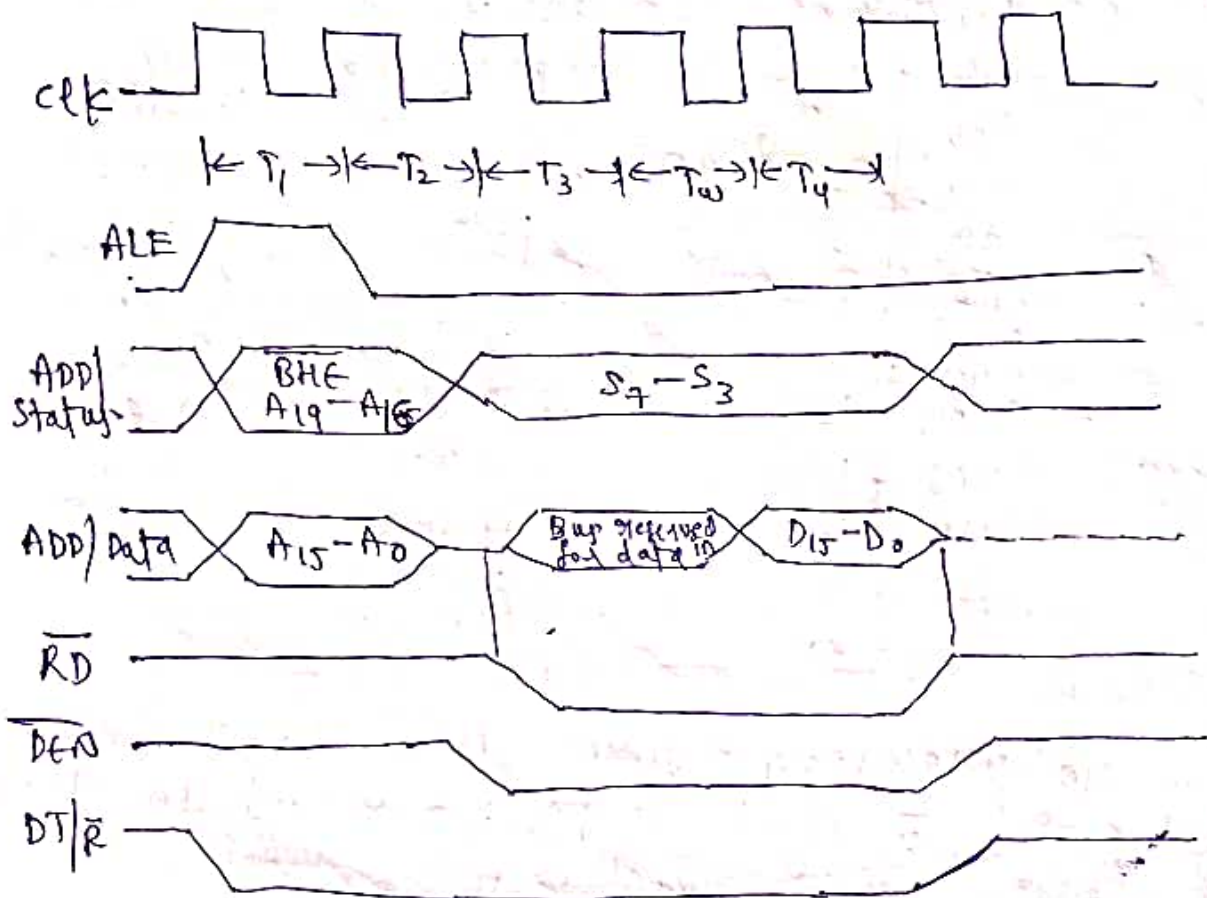 Clk
T₁ T₂ T₃ Tw T₄
ALE
ADD/
Status
BHE
A19-A16
S7-S3
ADD/Data
A15-A0
Bus reserved
for data in
D15-D0
RD
DEN
DT/R